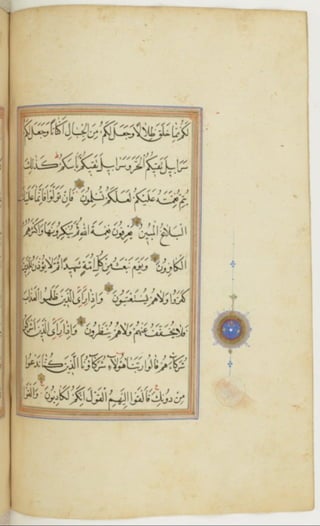 لكم مما خلق ظلالا وجعل لكم من الجبال اكنانا وجعل لكم
سرابيل تقيكم الحر وسرابيل تقيكم باسكم كذلك
يتم نعمته عليكم لعلكم تسلمون فان تولوا فانما عليك
البلاغ المبين يعرفون نعمة الله ثم ينكرونها واكثرهم
الكافرون ويوم نبعث من كل امة شهيدا ثم لا يؤذن للذين
كفروا ولا هم يستعتبون واذا راى الذين ظلموا العذاب
فلا يخفف عنهم ولا هم ينظرون واذا راى الذين اشركوا
شركاءهم قالوا ربنا هؤلاء شركاؤنا الذين كنا ندعوا
من دونك فالقوا اليهم القول انكم لكاذبون والقوا